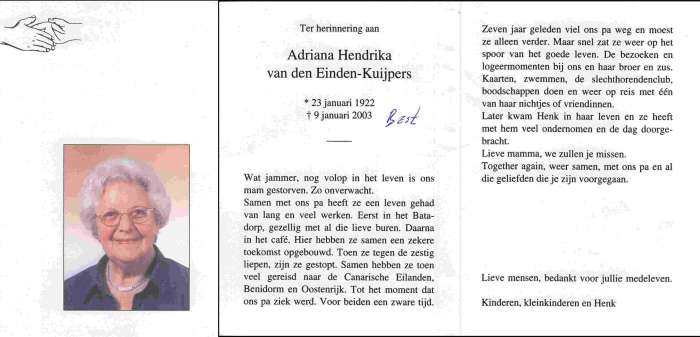 Ter herinnering aan
Adriana Hendrika
van den Einden-Kuijpers
* 23 januari 1922
† 9 januari 2003
Best
Wat jammer, nog volop in het leven is ons
mam gestorven. Zo onverwacht.
Samen met ons pa heeft ze een leven gehad
van lang en veel werken. Eerst in het Bata-
dorp, gezellig met al die lieve buren. Daarna
in het café. Hier hebben ze samen een zekere
toekomst opgebouwd. Toen ze tegen de zestig
liepen, zijn ze gestopt. Samen hebben ze toen
veel gereisd naar de Canarische Eilanden,
Benidorm en Oostenrijk. Tot het moment dat
ons pa ziek werd. Voor beiden een zware tijd.
Zeven jaar geleden viel ons pa weg en moest
ze alleen verder. Maar snel zat ze weer op het
spoor van het goede leven. De bezoeken en
logeermomenten bij ons en haar broer en zus.
Kaarten, zwemmen, de slechthorendenclub,
boodschappen doen en weer op reis met één
van haar nichtjes of vriendinnen.
Later kwam Henk in haar leven en ze heeft
met hem veel ondernomen en de dag doorge-
bracht.
Lieve mamma, we zullen je missen.
Together again, weer samen, met ons pa en al
die geliefden die je zijn voorgegaan.
Lieve mensen, bedankt voor jullie medeleven.
Kinderen, kleinkinderen en Henk